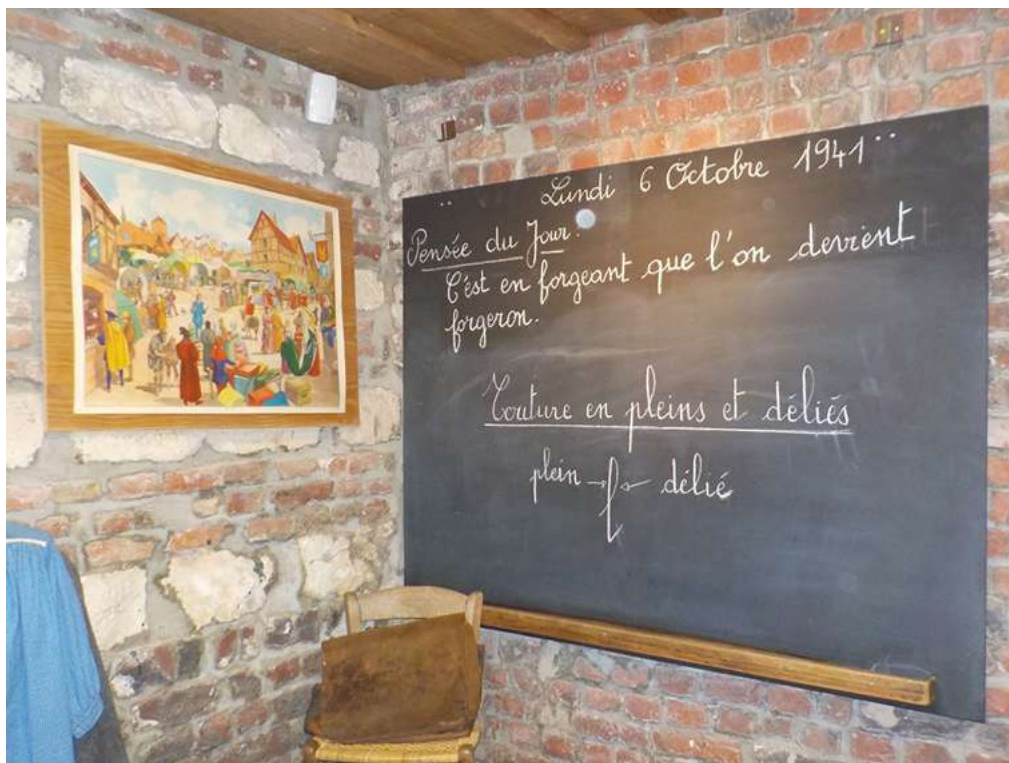 Lundi 6 Octobre 1941
Pensée du Jour :
C'est en forgeant que l'on devient
forgeron.
Couture en pleins et déliés
plein → f ← délié